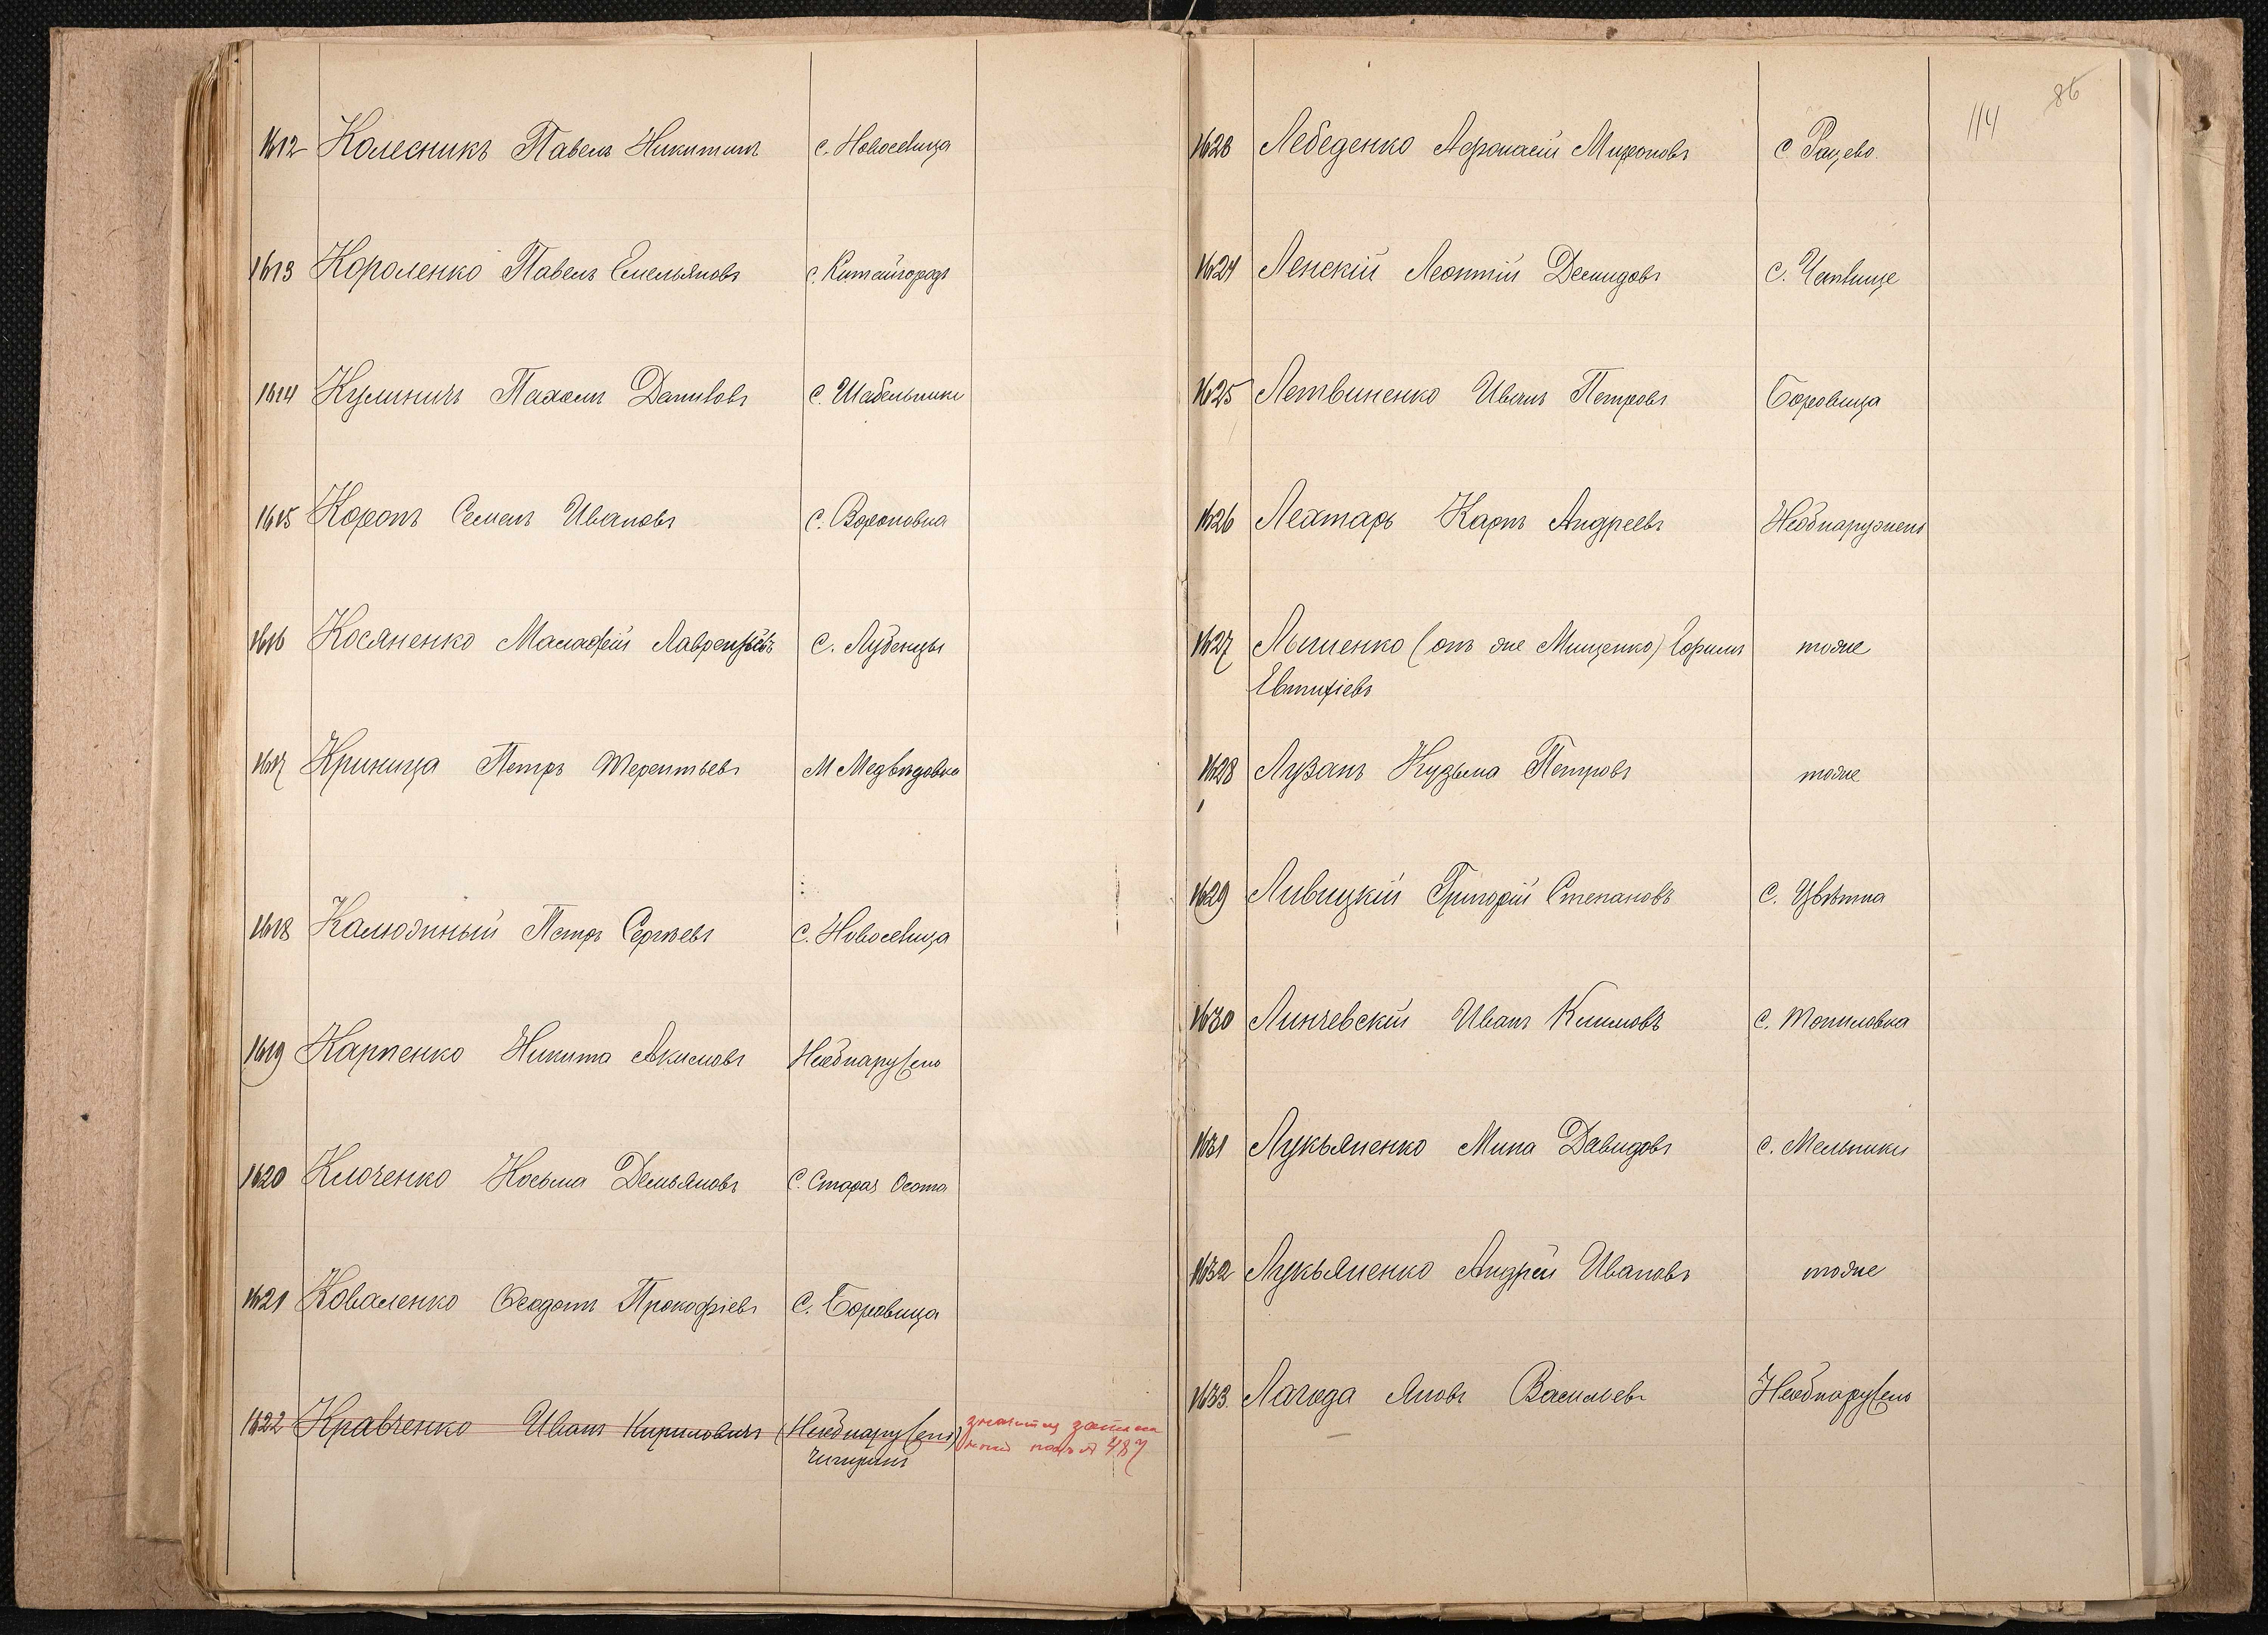 1612 Колесникъ Павелъ Никитинъ с. Новоселица
1613 Короленко Павелъ Емельяновъ с. Китайгородъ
1614 Кулиничъ Пахомъ Даниловъ с. Шабельники
1615 Коропъ Семенъ Ивановъ с. Вороновка
1616 Косяненко Малафей Лаврентьевъ с. Лубенцы
1617 Криница Петръ Терентьевъ М Медвѣдовка
1618 Калюжный Петръ Сергѣевъ с. Новоселица
1619 Карпенко Никита Акимовъ Необнаружено
1620 Клоченко Косьма Демьяновъ с. Старая Осота
1621 Коваленко Ѳеодотъ Прокофіевъ с. Боровица
1622 Кравченко Иванъ Кириловичъ (Необнаружено)
Чигиринъ
значится
под № 487
114
86
1623 Лебеденко Афонасій Мироновъ с Рацево.
1624 Ленскій Леонтій Демидовъ с.
1625 Летвиненко Иванъ Петровъ Боровица
1626 Лехтарь Карпъ Андреевъ Необнаружено
1627 Лышенко (онъ же Мищенко) Ефимъ тоже
Евтихіевъ
1628 Лузанъ Кузьма Петровъ тоже
1629 Ливицкій Григорій Степановъ с. Цвѣтна
1630 Линчевскій Иванъ Климовъ с. Топиловка
1631 Лукьяненко Мина Давидовъ с. Мельники
1632 Лукьяненко Андрей Ивановъ тоже
1633. Лагода Яковъ Васильевъ Необнаружено